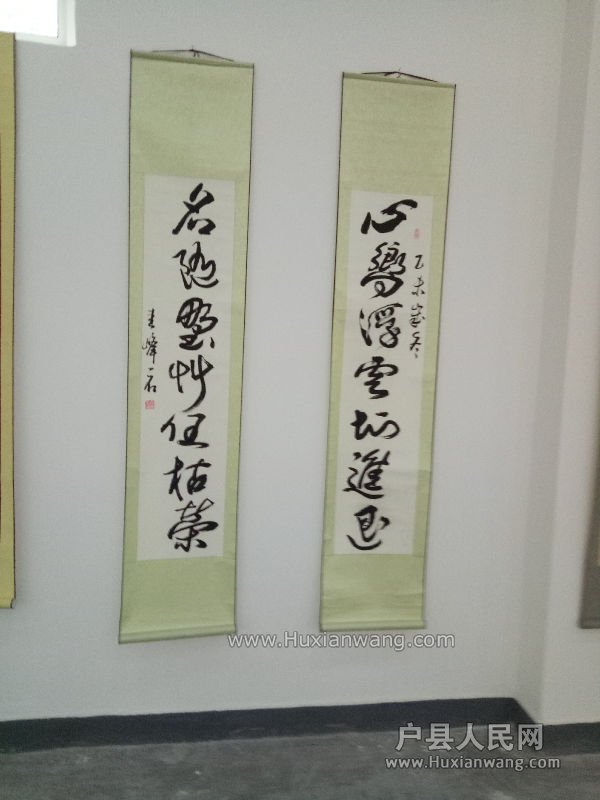 心嚮浮雲知進退
乙未歲冬
名隨野艸任枯榮
圭峰一石
www.Huxianwang.com
户县人民网
www.Huxianwang.com